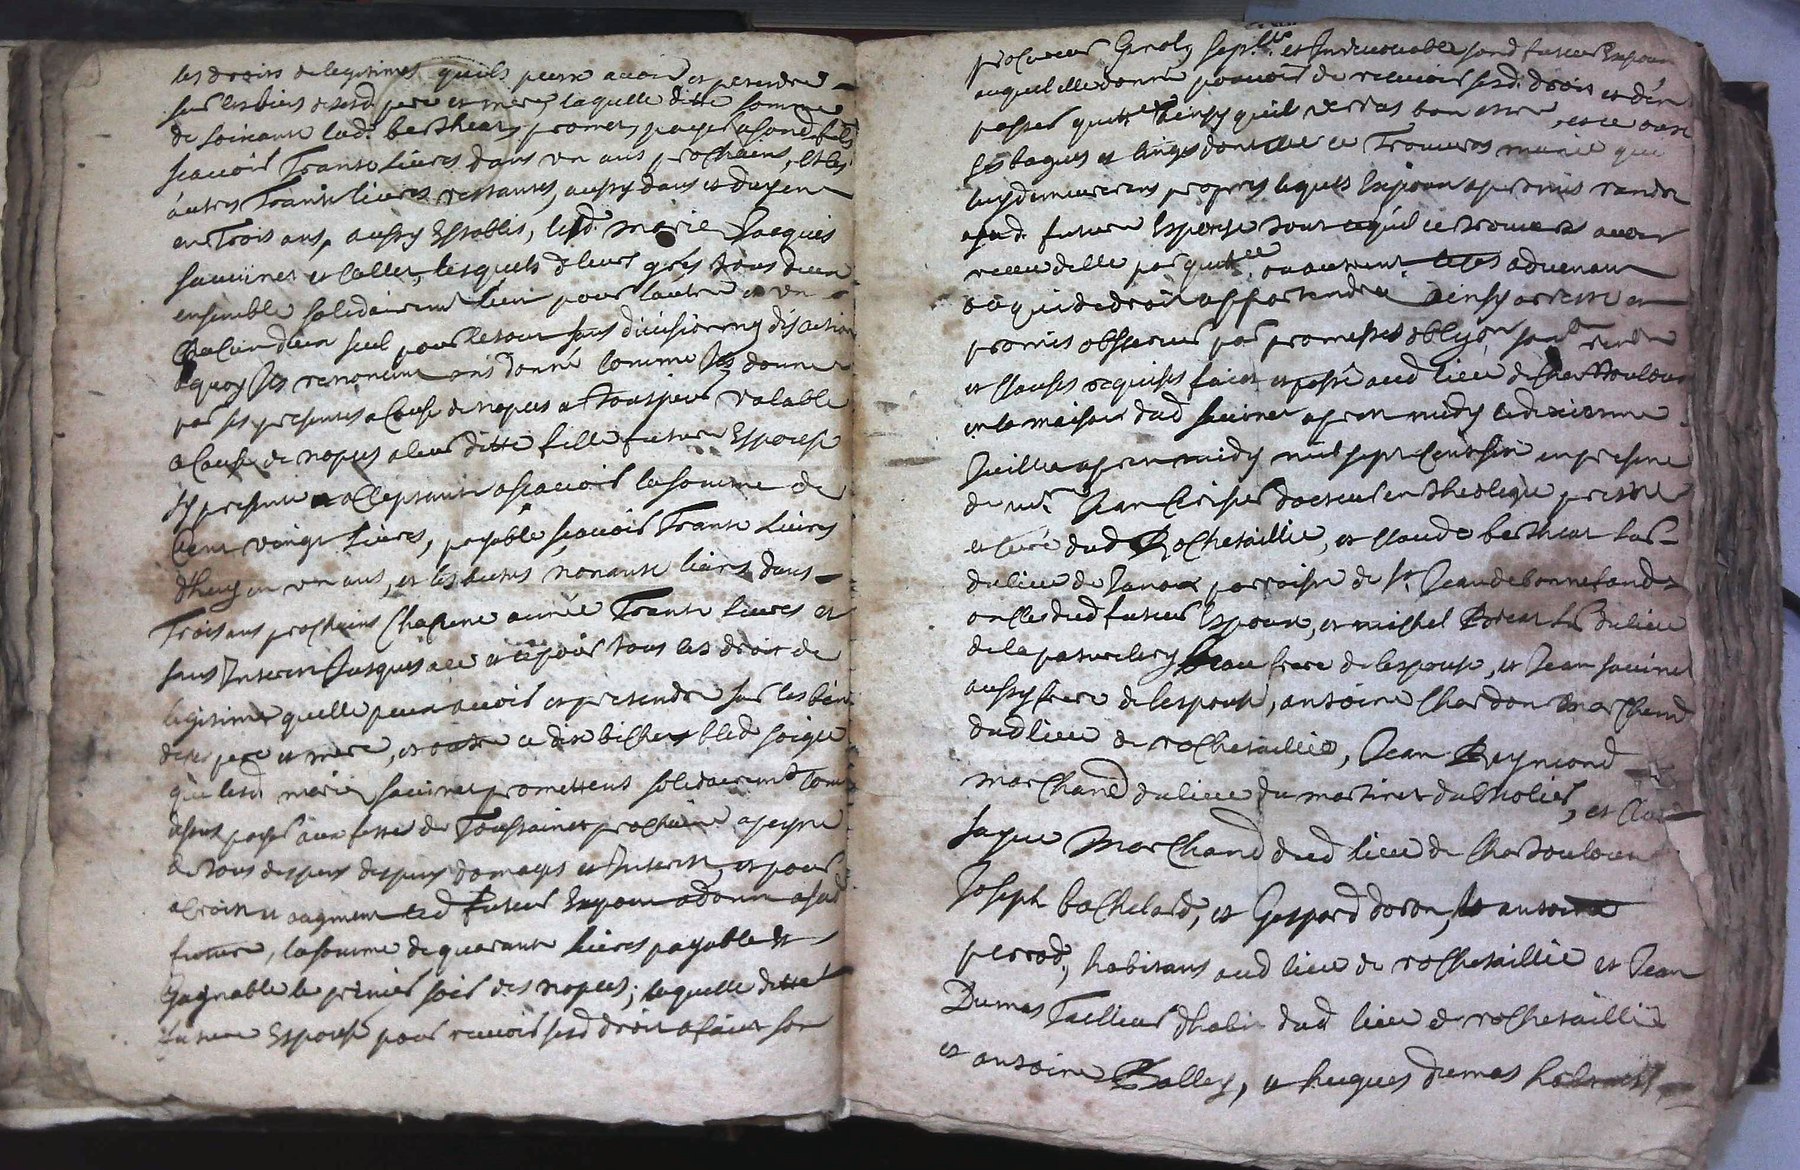 les droits de legitimes quils peuve avoir et pretendre
sur les biens de sesd. pere et mere, laquelle ditte somme
de soixante lad. berthear promet payer a sond. fils
scavoir Trante Livres dans un ans prochains, et les
autres Trante livres restantes, aussy dans
en Trois ans, aussy Establis, lesd. marie Jacques
sauvinet et Collet, lesquels de leurs grés tous deux
ensemble solidairement lun pour lautre et un
Chacun deux seul pour le tout sans division ny discution
a quoy Ils renoncent ons donné comme Ils donne
par ses presentes a Cause de nopces a toutjour valable
a Cause de nopces a leur ditte fille future Espouse
Isy presente et acceptante ascavoir la somme de
Cent vingt Livres, payable scavoir Trante Livres
dhuy en un ans, et les autres nonante livres dans
Trois ans prochains Chacune année Trante livres et
sans Interest Jusques a ce et ce pour tous les droit de
legitimes quelle peux avoir et pretendre sur les biens
de ses pere et mere, et outre ce dix bichets bled soigle
que lesd. marie sauvinet promettent solidairemt
payer a la feste de Toussaint prochaine a peyne
de tous despens domages et Interest, et pour
acroist et augment led. futur Espoux a donné a sad.
future, la somme de quarante livres payable et
Gagnable le premier soir des nopces; laquelle ditte
future Espouse pour recevoir sesd. droit a fait son
procureur Gnal et Irrevocable sond. futur Espoux
auquel elle donne pouvoir de recevoir sesd. droit et den
passer quitte ainsy quil verras bon estre, et ce outre
ses bagues et linges dont elle ce Trouveras munie que
luy demeureront propres lequels Espoux a promis randre
a sad. future Espouse tout ce qu'il ce trouvera avoir
receu delle par quittce ou autrement le cas advenant
ou a qui de droit appartiendra ainsy arresté et
promis observer par promesses oblijon
et Clauses requises faict et passé aud. lieu de Chartouloux
en la maison dud. sauvinet apres midy le dixieme
Juillet apres midy mil sept Cent six en presence
de mre Jean Crispet docteur en theologie prestre
et curé dud. Rochetaillie, et Claude berthear
du lieu de Janox parroisse de St. Jean de bonnefonds
oncle dud. futur Espoux, et michel du lieu
de la paturelery beau frere de lespouse, et Jean sauvinet
aussy frere de lespouse, antoine Chardon Marchand
dud. lieu de rochetaillié, Jean Reymond
marChand du lieu du martinet du, et
Jayue MarChand dud. lieu de Chartouloux
Joseph bachelard, et Gaspard doron, et antoine
perrod, habitans aud. lieu de rochetaillié et Jean
Dumas Tailleur dhabit dud. lieu de rochetaillié
et antoine Balley, et hugues dumas